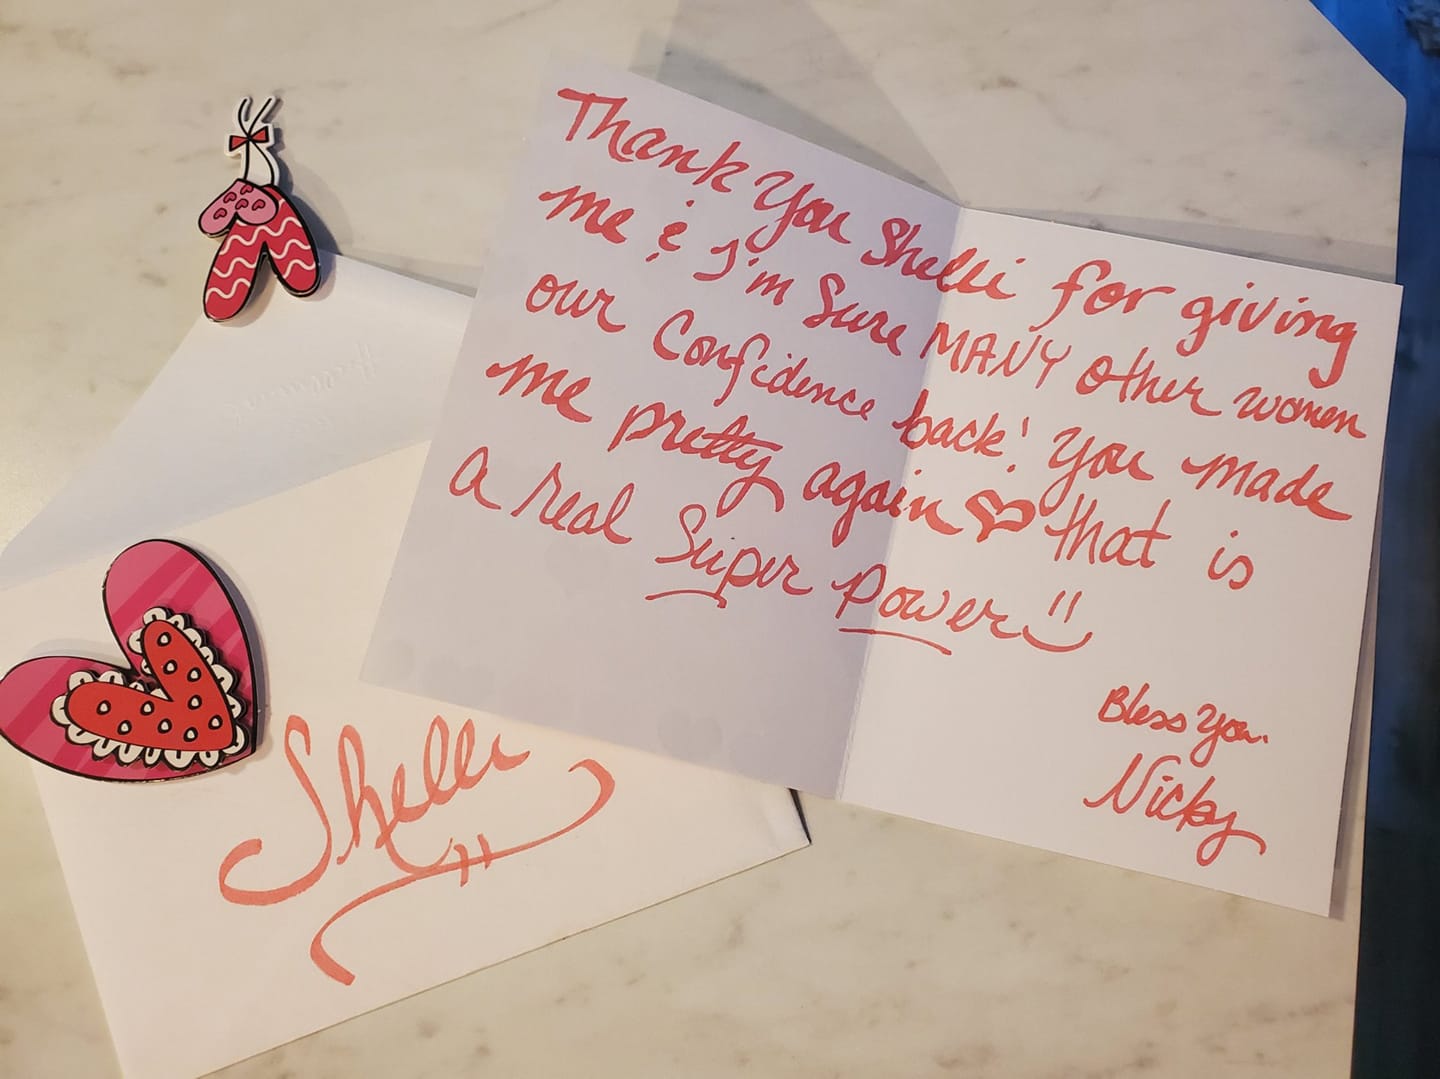 Thank You Shelli for giving
me & I'm Sure MANY other women
our Confidence back! You made
me pretty again ♡ that is
a real Super Power
Bless You.
Nicky
Shelli
Hallmark